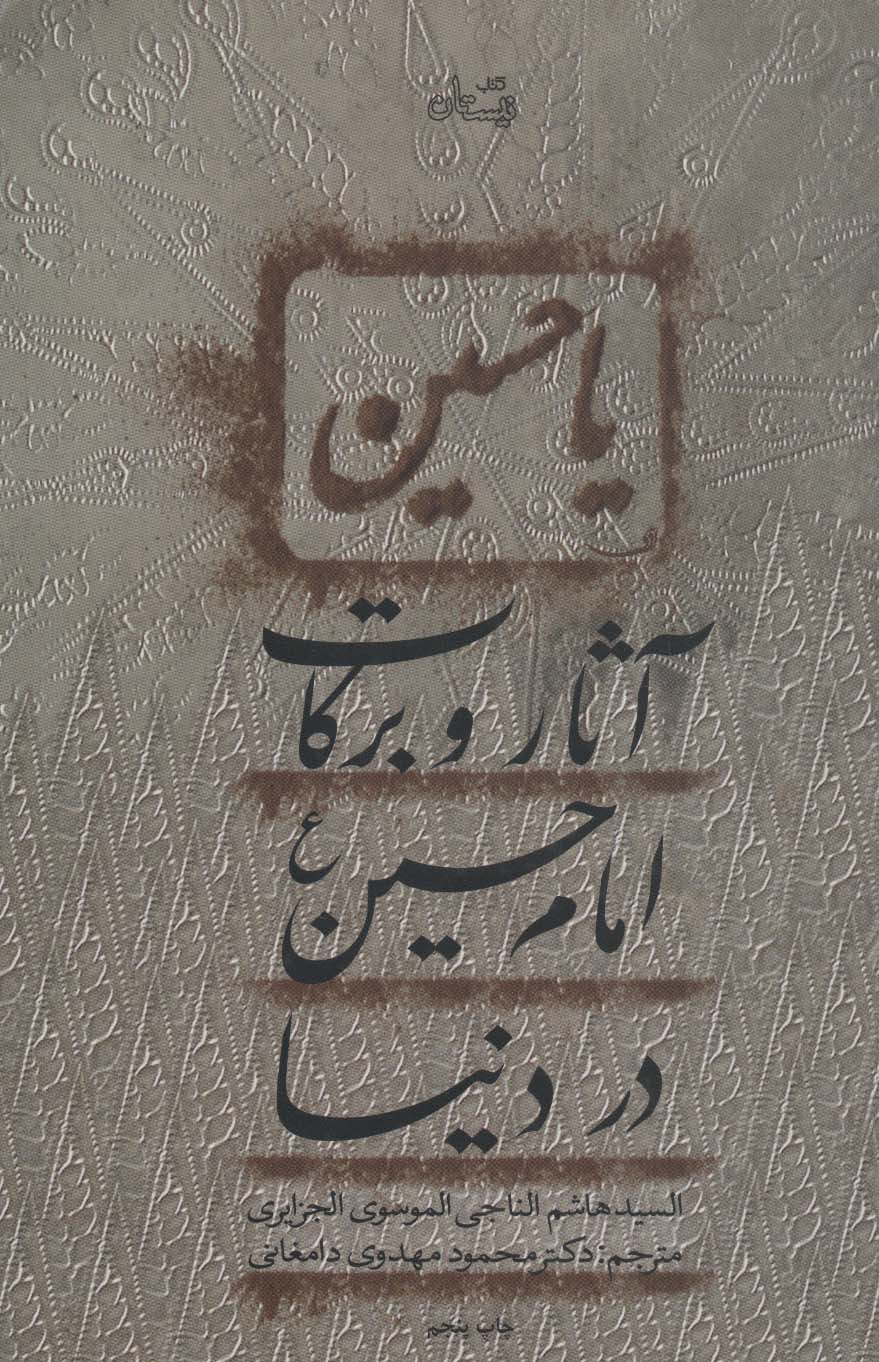 کتاب
نیستان
یا حسین
آثار و برکات
امام حسین ع
در دنیا
السید هاشم الناجی الموسوی الجزایری
مترجم: دکتر محمود مهدوی دامغانی
چاپ پنجم